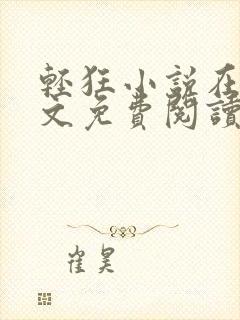 輕狂小說在
文免費閱讀
崔昊